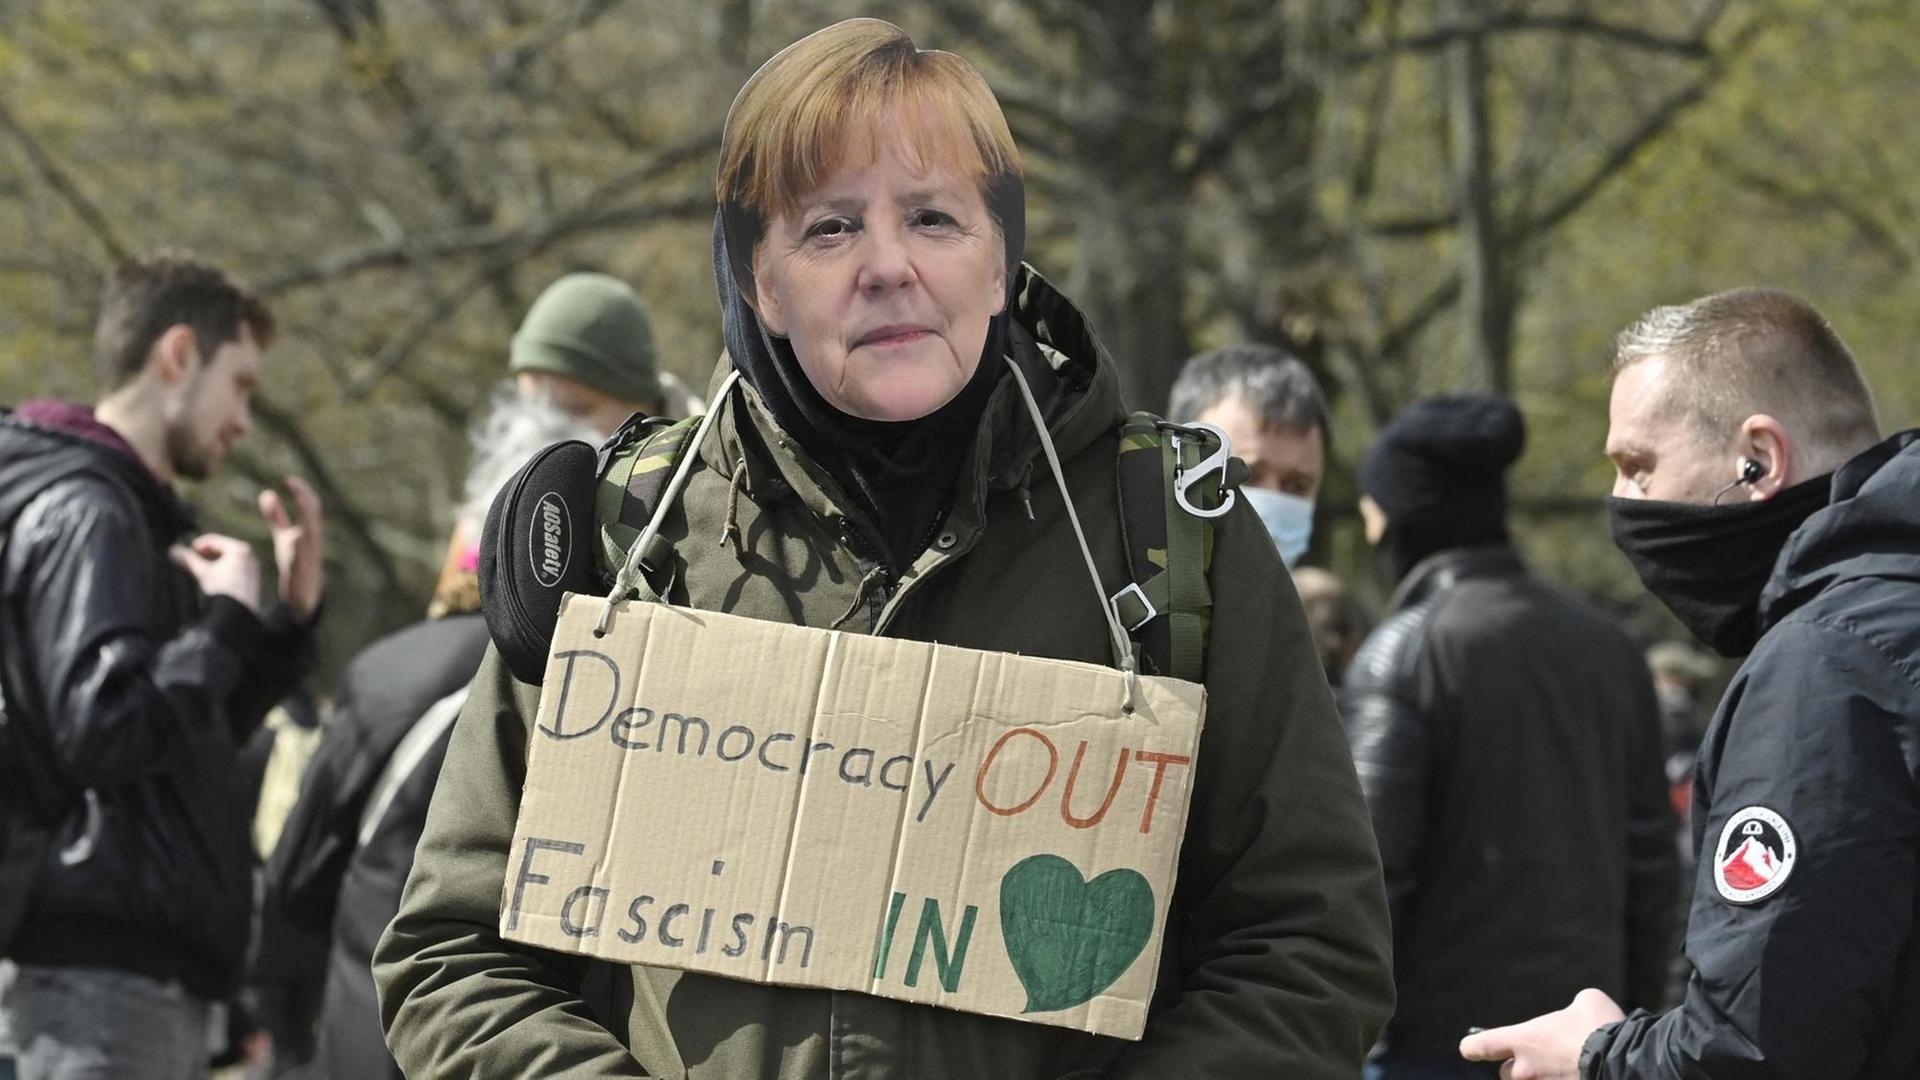 AOSafety
Democracy OUT
Fascism IN